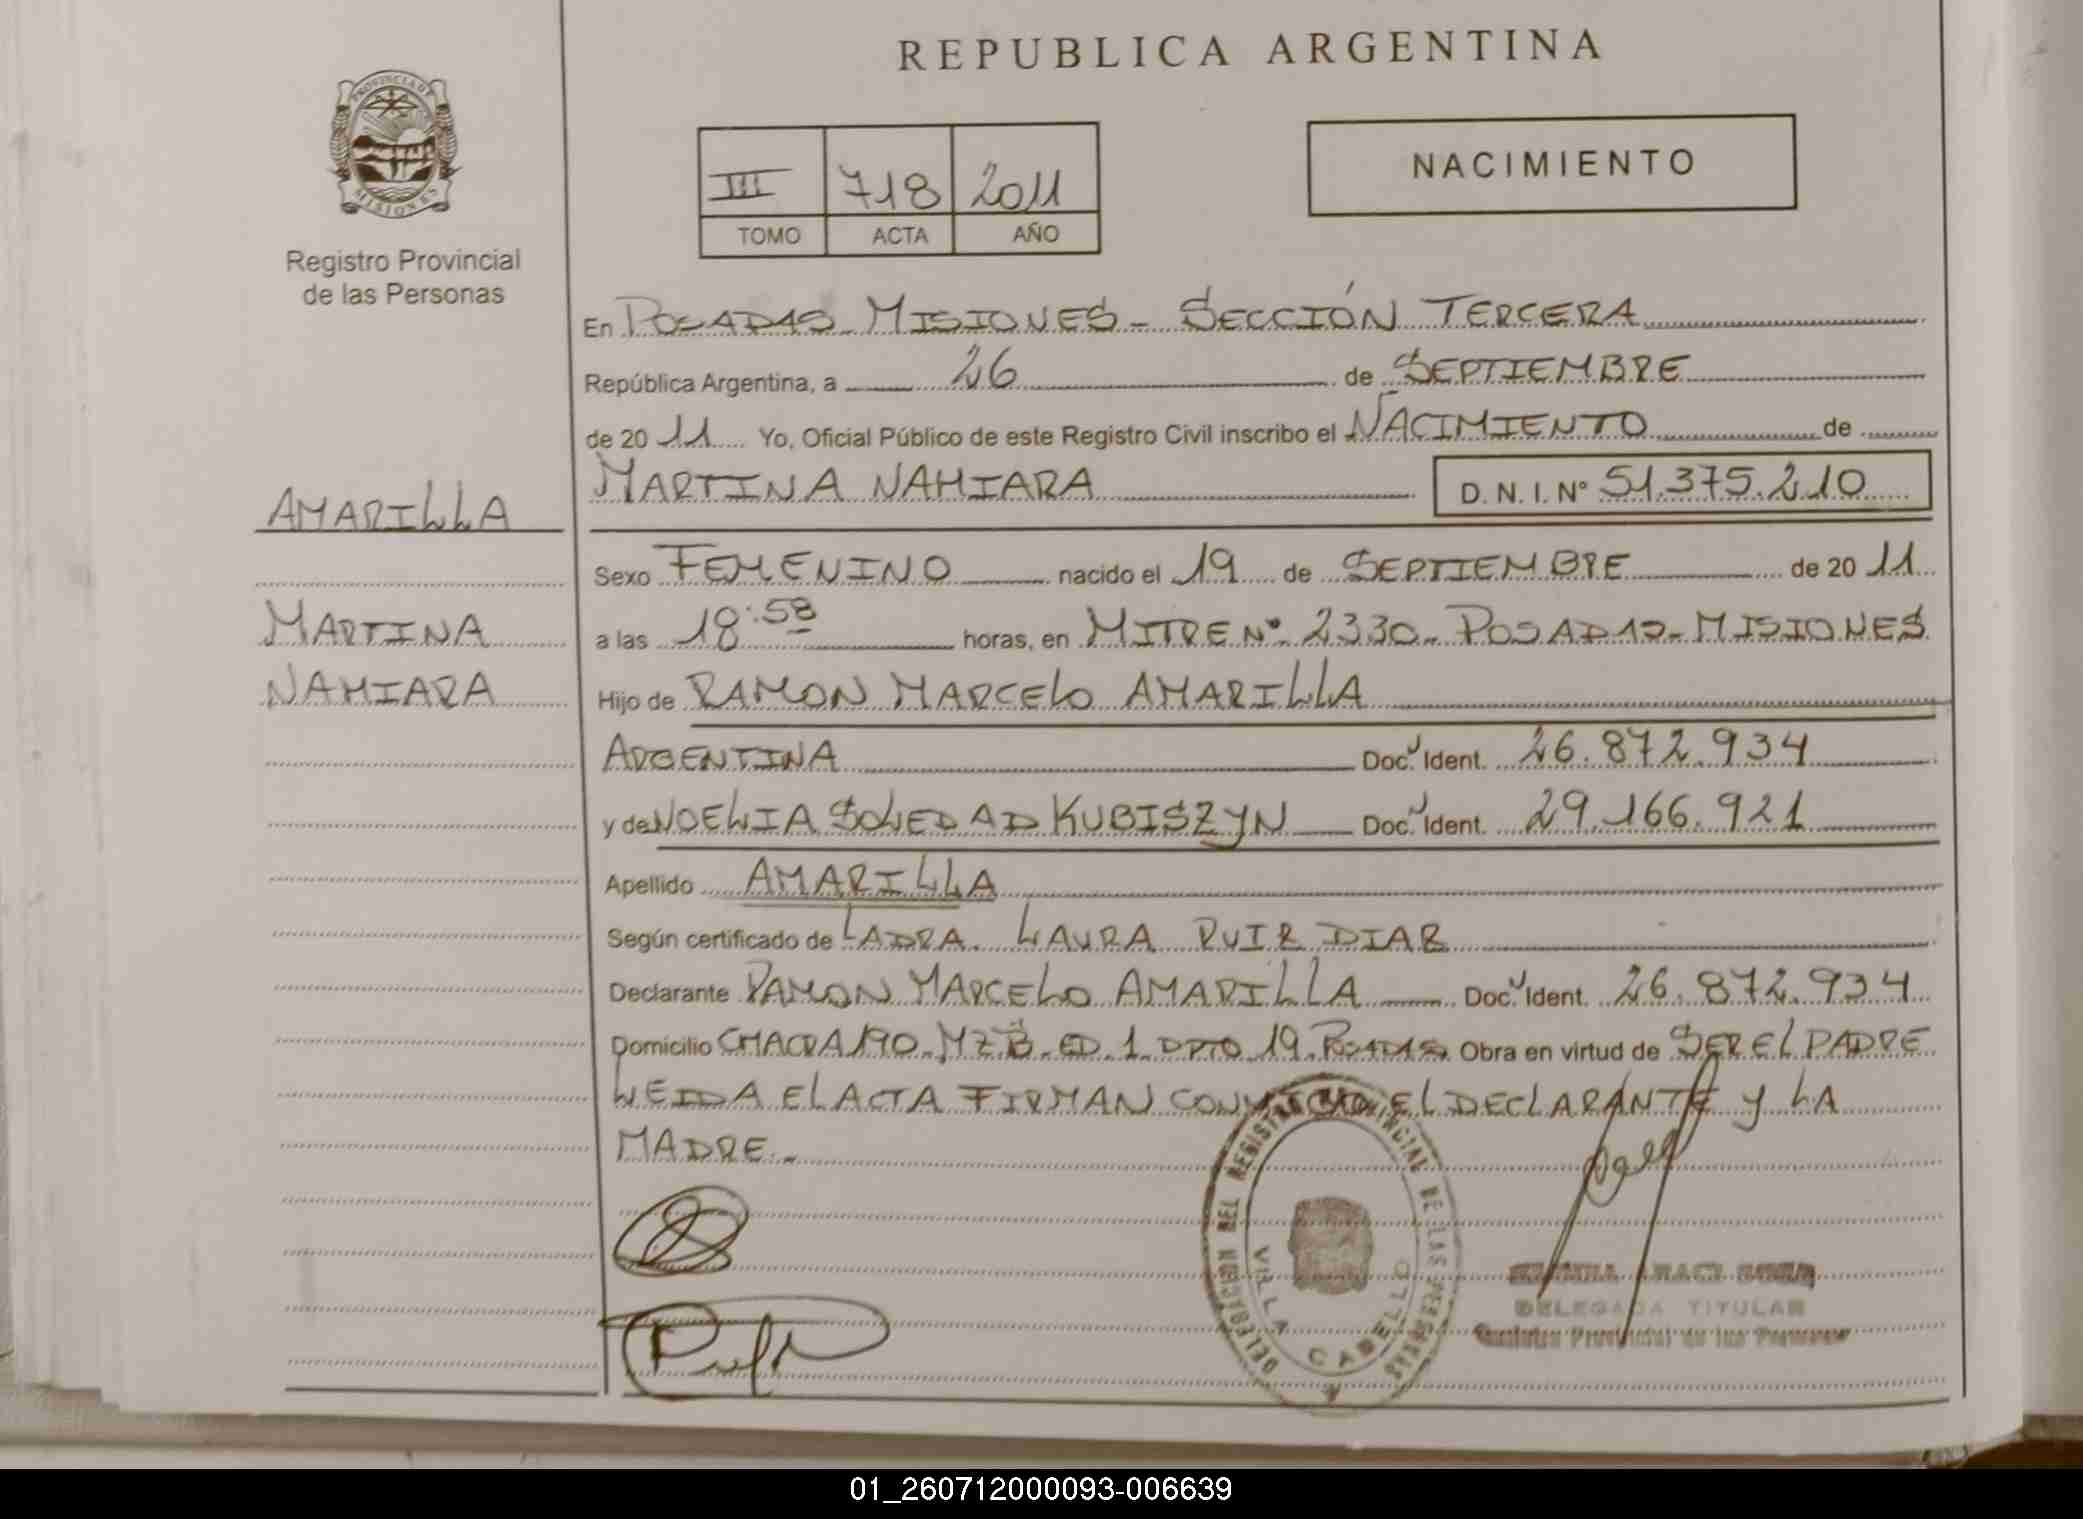 REPUBLICA ARGENTINA
PROVINCIA DE MISIONES
Registro Provincial
de las Personas
III 718 2011
TOMO ACTA AÑO
NACIMIENTO
En POSADAS MISIONES - SECCIÓN TERCERA
República Argentina, a 26 de SEPTIEMBRE
de 20 11 Yo, Oficial Público de este Registro Civil inscribo el NACIMIENTO de
MARTINA NAHIARA D. N. I. Nº 51.375.210
AMARILLA
MARTINA
NAHIARA
Sexo FEMENINO nacido el 19 de SEPTIEMBRE de 20 11
a las 18:58 horas, en MITRE Nº 2330 - POSADAS - MISIONES
Hijo de RAMON MARCELO AMARILLA
ARGENTINA Doc. Ident. 26.872.934
y de NOELIA SOLEDAD KUBISZYN Doc. Ident. 29.166.921
Apellido AMARILLA
Según certificado de LA DRA. LAURA RUIZ DIAZ
Declarante RAMON MARCELO AMARILLA Doc. Ident. 26.872.934
Domicilio CHACRA 190 MZ B ED 1 DPTO 19 POSADAS Obra en virtud de SER EL PADRE
LEIDA EL ACTA FIRMAN CONMIGO EL DECLARANTE Y LA
MADRE.-
DELEGACION DEL REGISTRO PROVINCIAL DE LAS PERSONAS
VILLA CABELLO
DELEGADA TITULAR
Provincial de las Personas
01_260712000093-006639